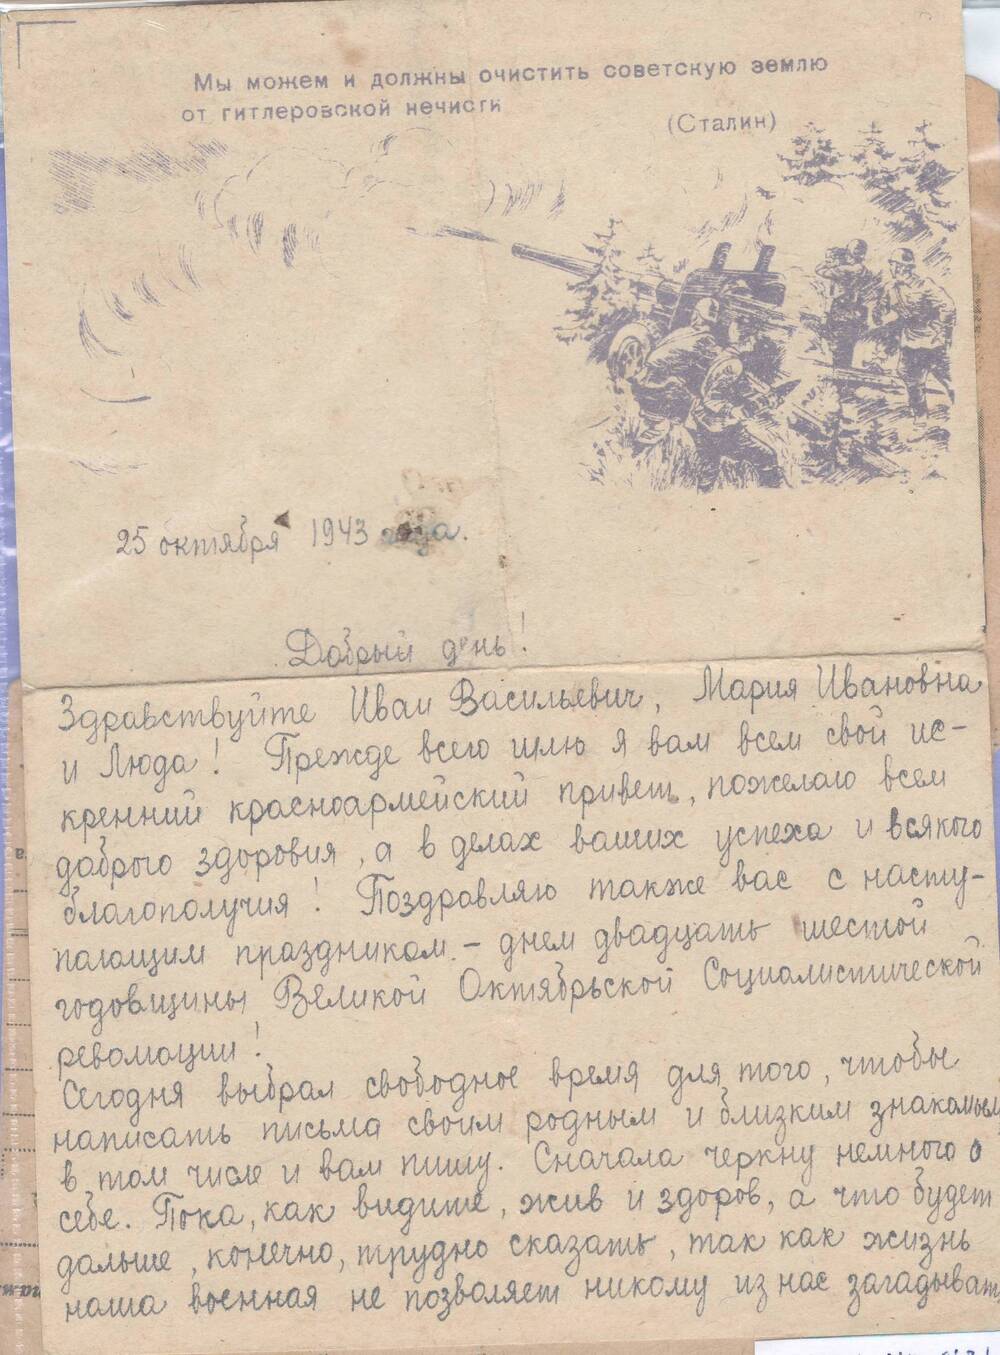 Мы можем и должны очистить советскую землю
от гитлеровской нечисти
(Сталин)
25 октября 1943 года.
Добрый день!
Здравствуйте Иван Васильевич, Мария Ивановна
и Люда! Прежде всего шлю я вам всем свой ис-
кренний красноармейский привет, пожелаю всем
доброго здоровия, а в делах ваших успеха и всякого
благополучия! Поздравляю также вас с насту-
пающим праздником - днем двадцать шестой
годовщины Великой Октябрьской Социалистической
революции!
Сегодня выбрал свободное время для того, чтобы
написать письма своим родным и близким знакомым,
в том числе и вам пишу. Сначала черкну немного о
себе. Пока, как видите, жив и здоров, а что будет
дальше, конечно, трудно сказать, так как жизнь
наша военная не позволяет никому из нас загадывать